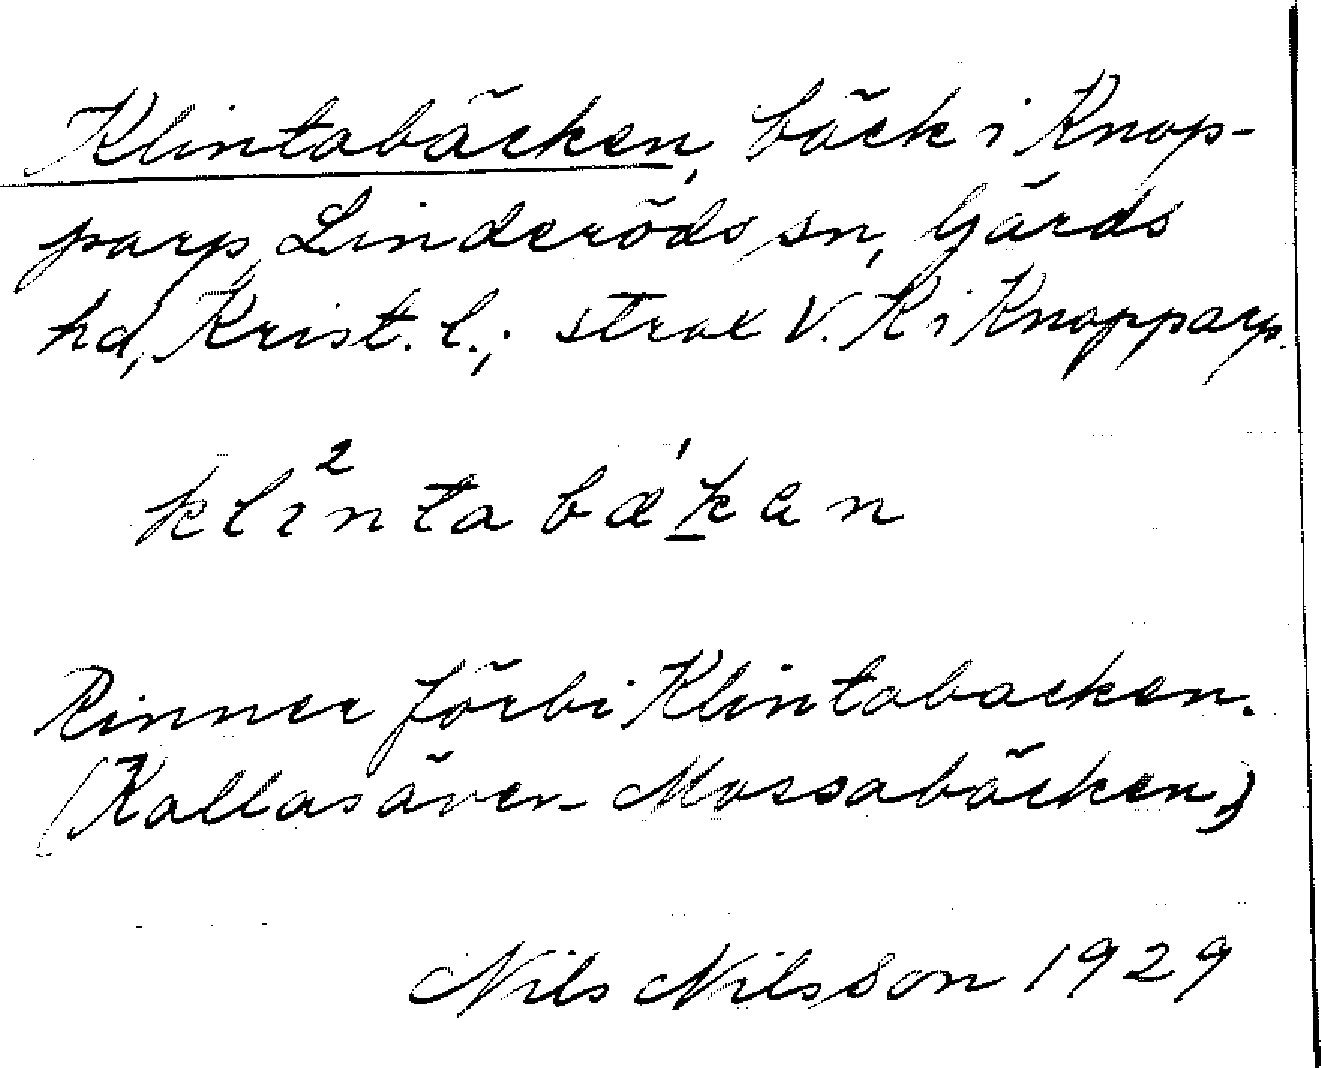 Klintabäcken, bäck i Knop-
parp, Linderöds sn, Gärds
hd, Krist. l.; strax V. K i Knopparp.
kli²ntabæ'kan
Rinner förbi Klintabacken.
(Kallas även Mossabäcken,)
Nils Nilsson 1929